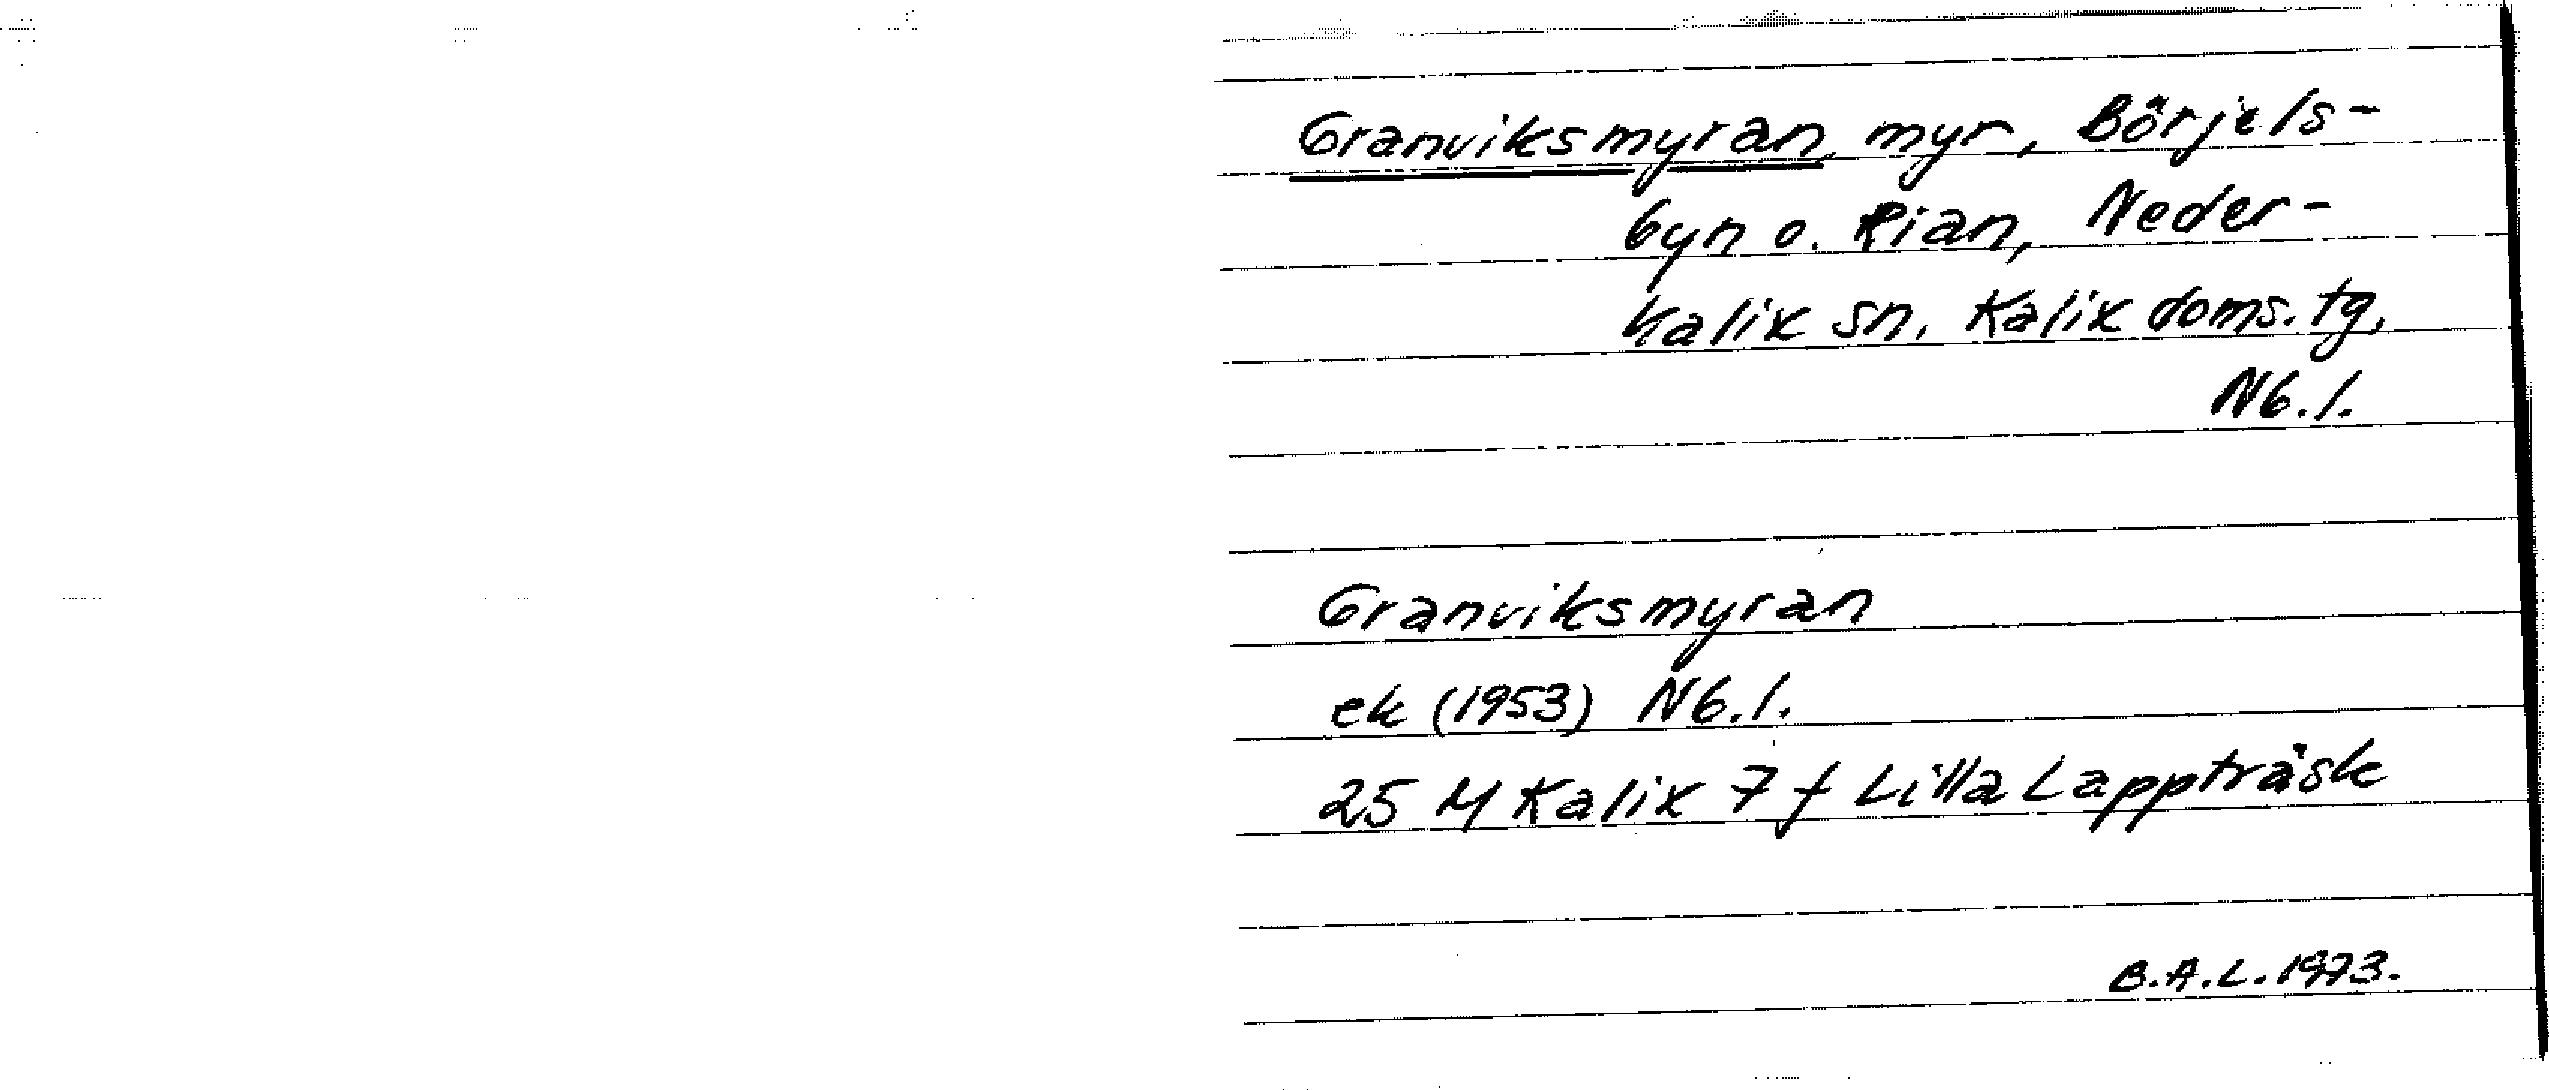 Granviksmyran, myr, Börjels-
byn o. Rian, Neder-
kalix sn, Kalix doms. tg,
Nb. l.
Granviksmyran
ek (1953) Nb. l.
25 M Kalix 7 f Lilla Lappträsk
B.A.L. 1973.